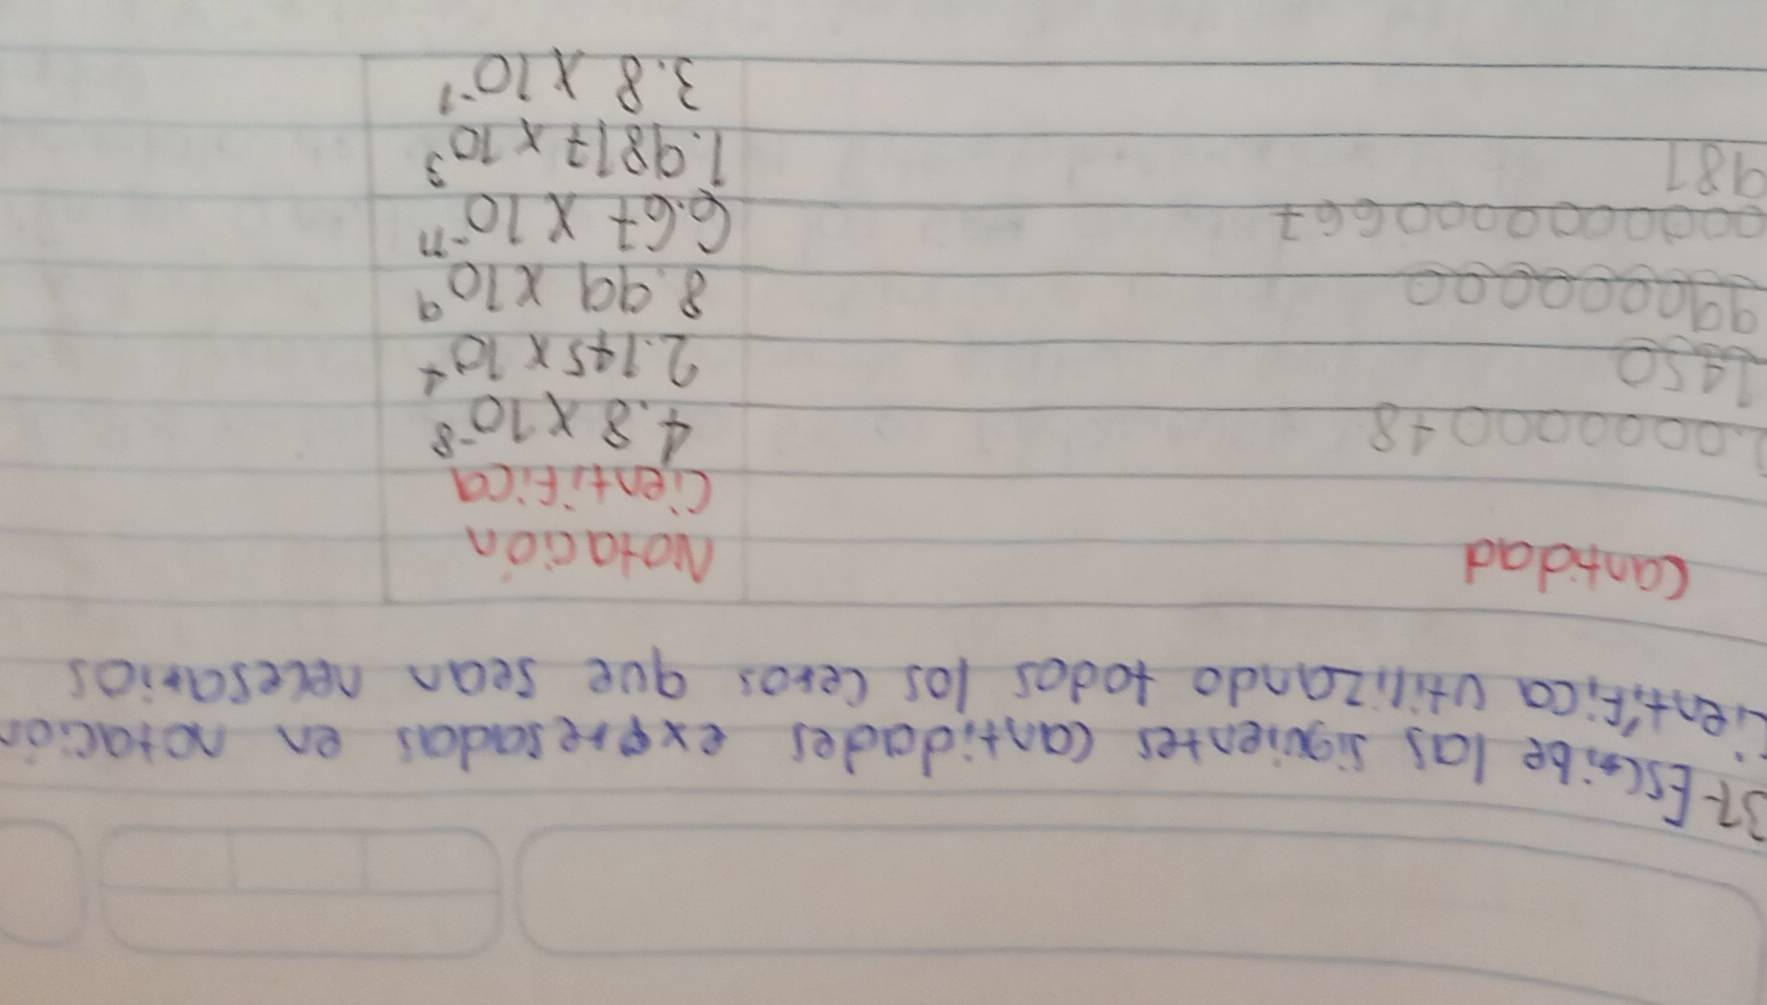 37-Escribe las siguientes cantidades expresadas en notación
científica utilizando todos los ceros que sean necesarios
Cantidad Notación
Científica
.000000048 4.8 x 10⁻⁸
1450 2.145 x 10⁴
990000000 8.99 x 10⁹
0000000000667 6.67 x 10⁻¹¹
981 1.9817 x 10³
3.8 x 10⁻¹